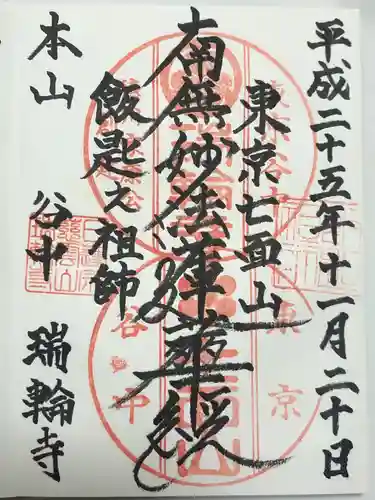 平成二十五年十一月二十日
東京七面山
南無妙法蓮華経
飯匙之祖師
本山 谷中 瑞輪寺